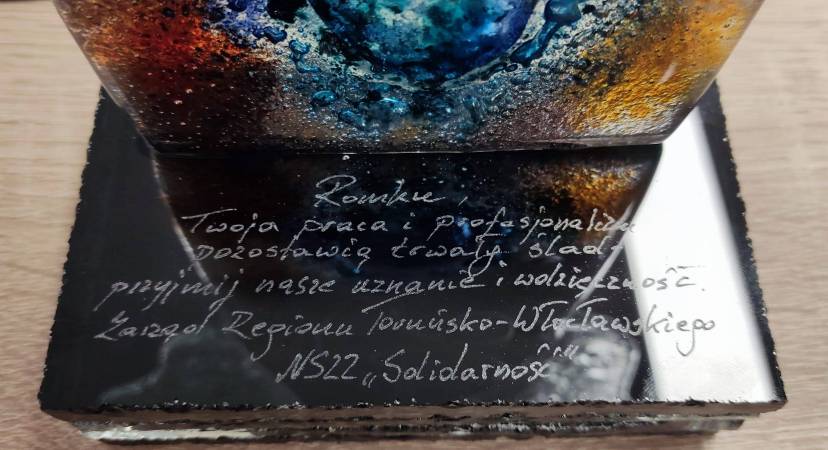 Romku,
Twoja praca i profesjonalizm
pozostawią trwały ślad -
przyjmij nasze uznanie i wdzięczność.
Zarząd Regionu Toruńsko-Włocławskiego
NSZZ „Solidarność"